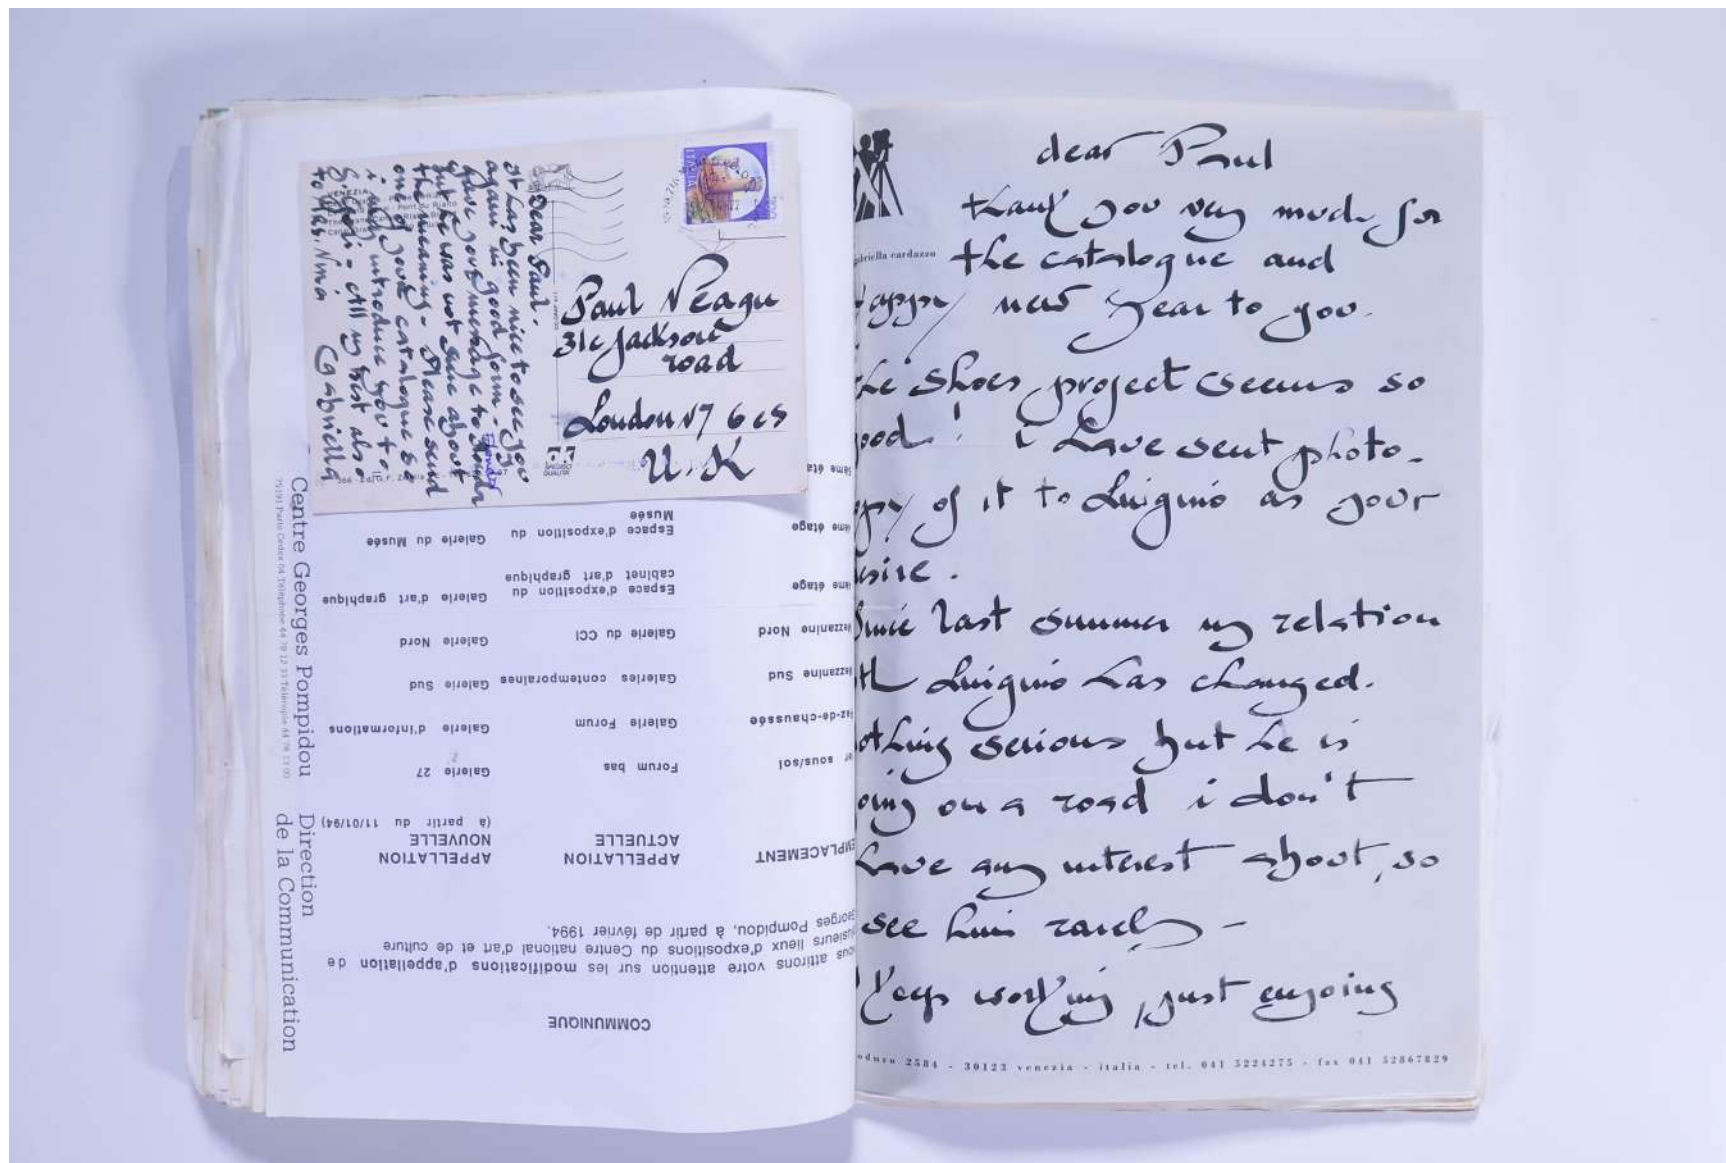 Dear Paul.
it has been nice to see you
again in good form -
gave your message to
but he was not sure about
the meaning - Please send
one of your catalogue so
i may introduce you to
All my best also
to Mrs. Nina Gabriella
VENEZIA
ITALIA
Paul Neagu
31c Jackson
road
London N7 6es
U.K
Centre Georges Pompidou
Direction
de la Communication
COMMUNIQUE
ous attirons votre attention sur les modifications d'appellation de
lusieurs lieux d'expositions du Centre national d'art et de culture
eorges Pompidou, à partir de février 1994.
EMPLACEMENT APPELLATION ACTUELLE APPELLATION NOUVELLE (à partir du 11/01/94)
er sous/sol Forum bas Galerie 27
ez-de-chaussée Galerie Forum Galerie d'informations
ezzanine Sud Galeries contemporaines Galerie Sud
ezzanine Nord Galerie du CCI Galerie Nord
ème étage Espace d'exposition du cabinet d'art graphique Galerie d'art graphique
ème étage Espace d'exposition du Musée Galerie du Musée
ème éta
gabriella cardazzo
dear Paul
thank you very much for
the catalogue and
happy new year to you.
the Shoes project seems so
good! i have sent photo-
opy of it to Luigino as your
esire.
Since last summer my relation
ith Luigino has changed.
othing serious but he is
oing on a road i don't
have any interest about, so
see him rarely -
keep working, just enjoing
oduro 2584 - 30123 venezia - italia - tel. 041 5224275 - fax 041 52867829